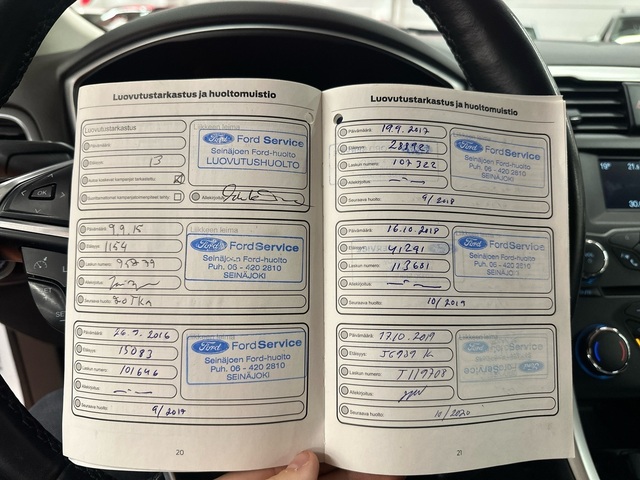 Luovutustarkastus ja huoltomuistio
Luovutustarkastus
Päivämäärä:
Etäisyys: 13
Allekirjoitus:
Ford Ford Service
Seinäjoen Ford-huolto
LUOVUTUSHUOLTO
Päivämäärä: 9.9.15
Etäisyys: 1154
Laskun numero:
Allekirjoitus:
Seuraava huolto: 30TKM
Liikkeen leima
Ford Ford Service
Seinäjoen Ford-huolto
Puh. 06 - 420 2810
SEINÄJOKI
Päivämäärä: 26.9.2016
Etäisyys: 15083
Laskun numero: 101646
Allekirjoitus:
Seuraava huolto: 9/2017
Ford Ford Service
Seinäjoen Ford-huolto
Puh. 06 - 420 2810
SEINÄJOKI
20
Luovutustarkastus ja huoltomuistio
Päivämäärä: 19.9.2017
Etäisyys:
Laskun numero: 107322
Allekirjoitus:
Seuraava huolto: 9/2018
Ford Ford Service
Seinäjoen Ford-huolto
Puh. 06 - 420 2810
SEINÄJOKI
Päivämäärä: 16.10.2018
Etäisyys: 41291
Laskun numero: 113651
Allekirjoitus:
Seuraava huolto: 10/2019
Ford Ford Service
Seinäjoen Ford-huolto
Puh. 06 - 420 2810
SEINÄJOKI
Päivämäärä: 17.10.2019
Etäisyys:
Laskun numero: T117708
Allekirjoitus:
Seuraava huolto: 10/2020
Ford Ford Service
21
OK